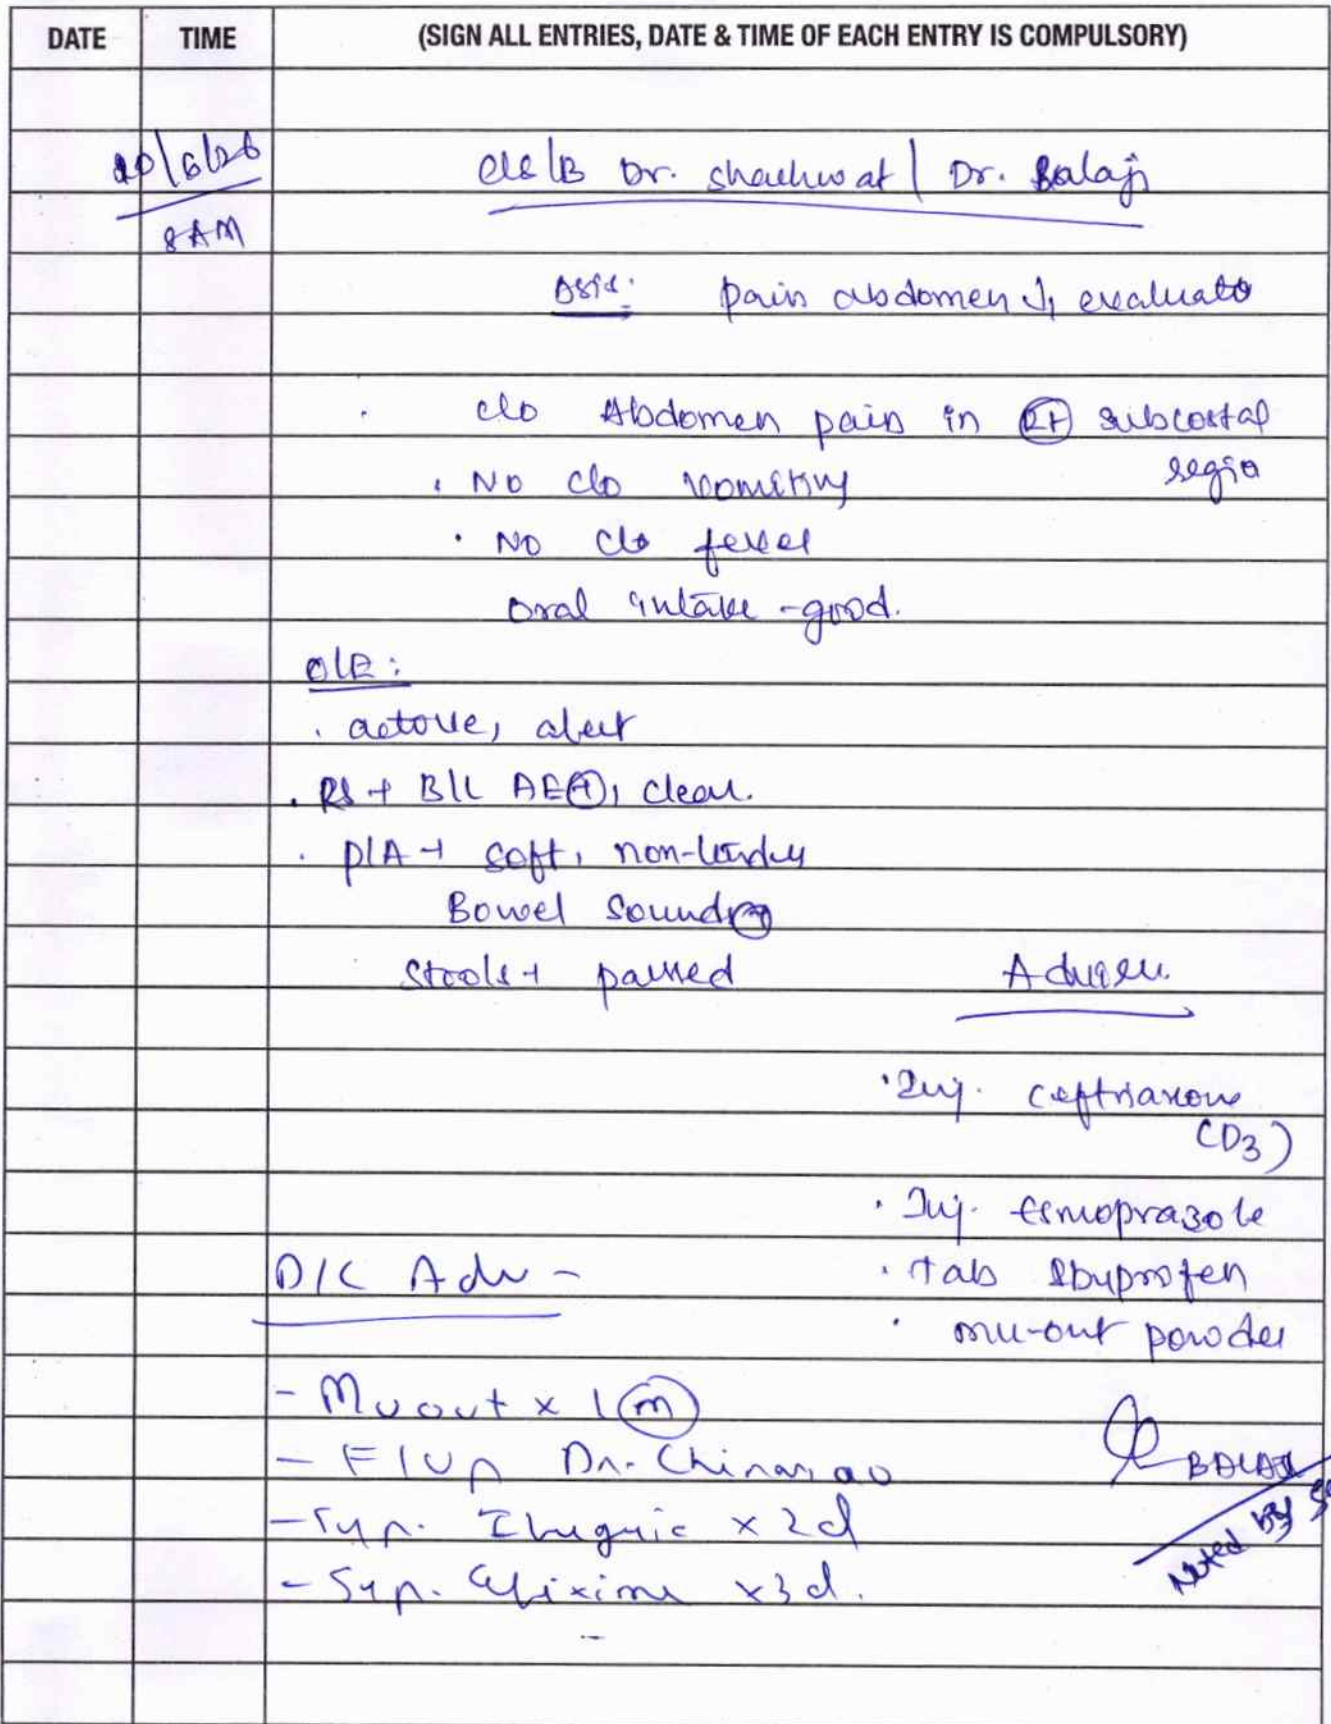 DATE TIME (SIGN ALL ENTRIES, DATE & TIME OF EACH ENTRY IS COMPULSORY)
20/6/26 c/s/B Dr. Shashwat / Dr. Balaji
8AM
pain abdomen evaluatn
c/o Abdomen pain in Rt subcostal
regio
. No c/o vomiting
. No c/o fever
oral intake - good.
O/E:
. active, alert
. RS → B/L AE⊕, clear.
. P/A → soft, non-tender
Bowel sound ⊕
Stools → passed Advice
. Inj. ceftriaxone
(D3)
. Inj. Esmoprazole
D/C Adv - . Tab Ibuprofen
. mu-out powder
- Muout x 1 (m)
- F/Up Dr. Chinarao
BALAJI
- Syp. Ibugesic x 2d
Noted by
- Syp. Cefixime x3d.